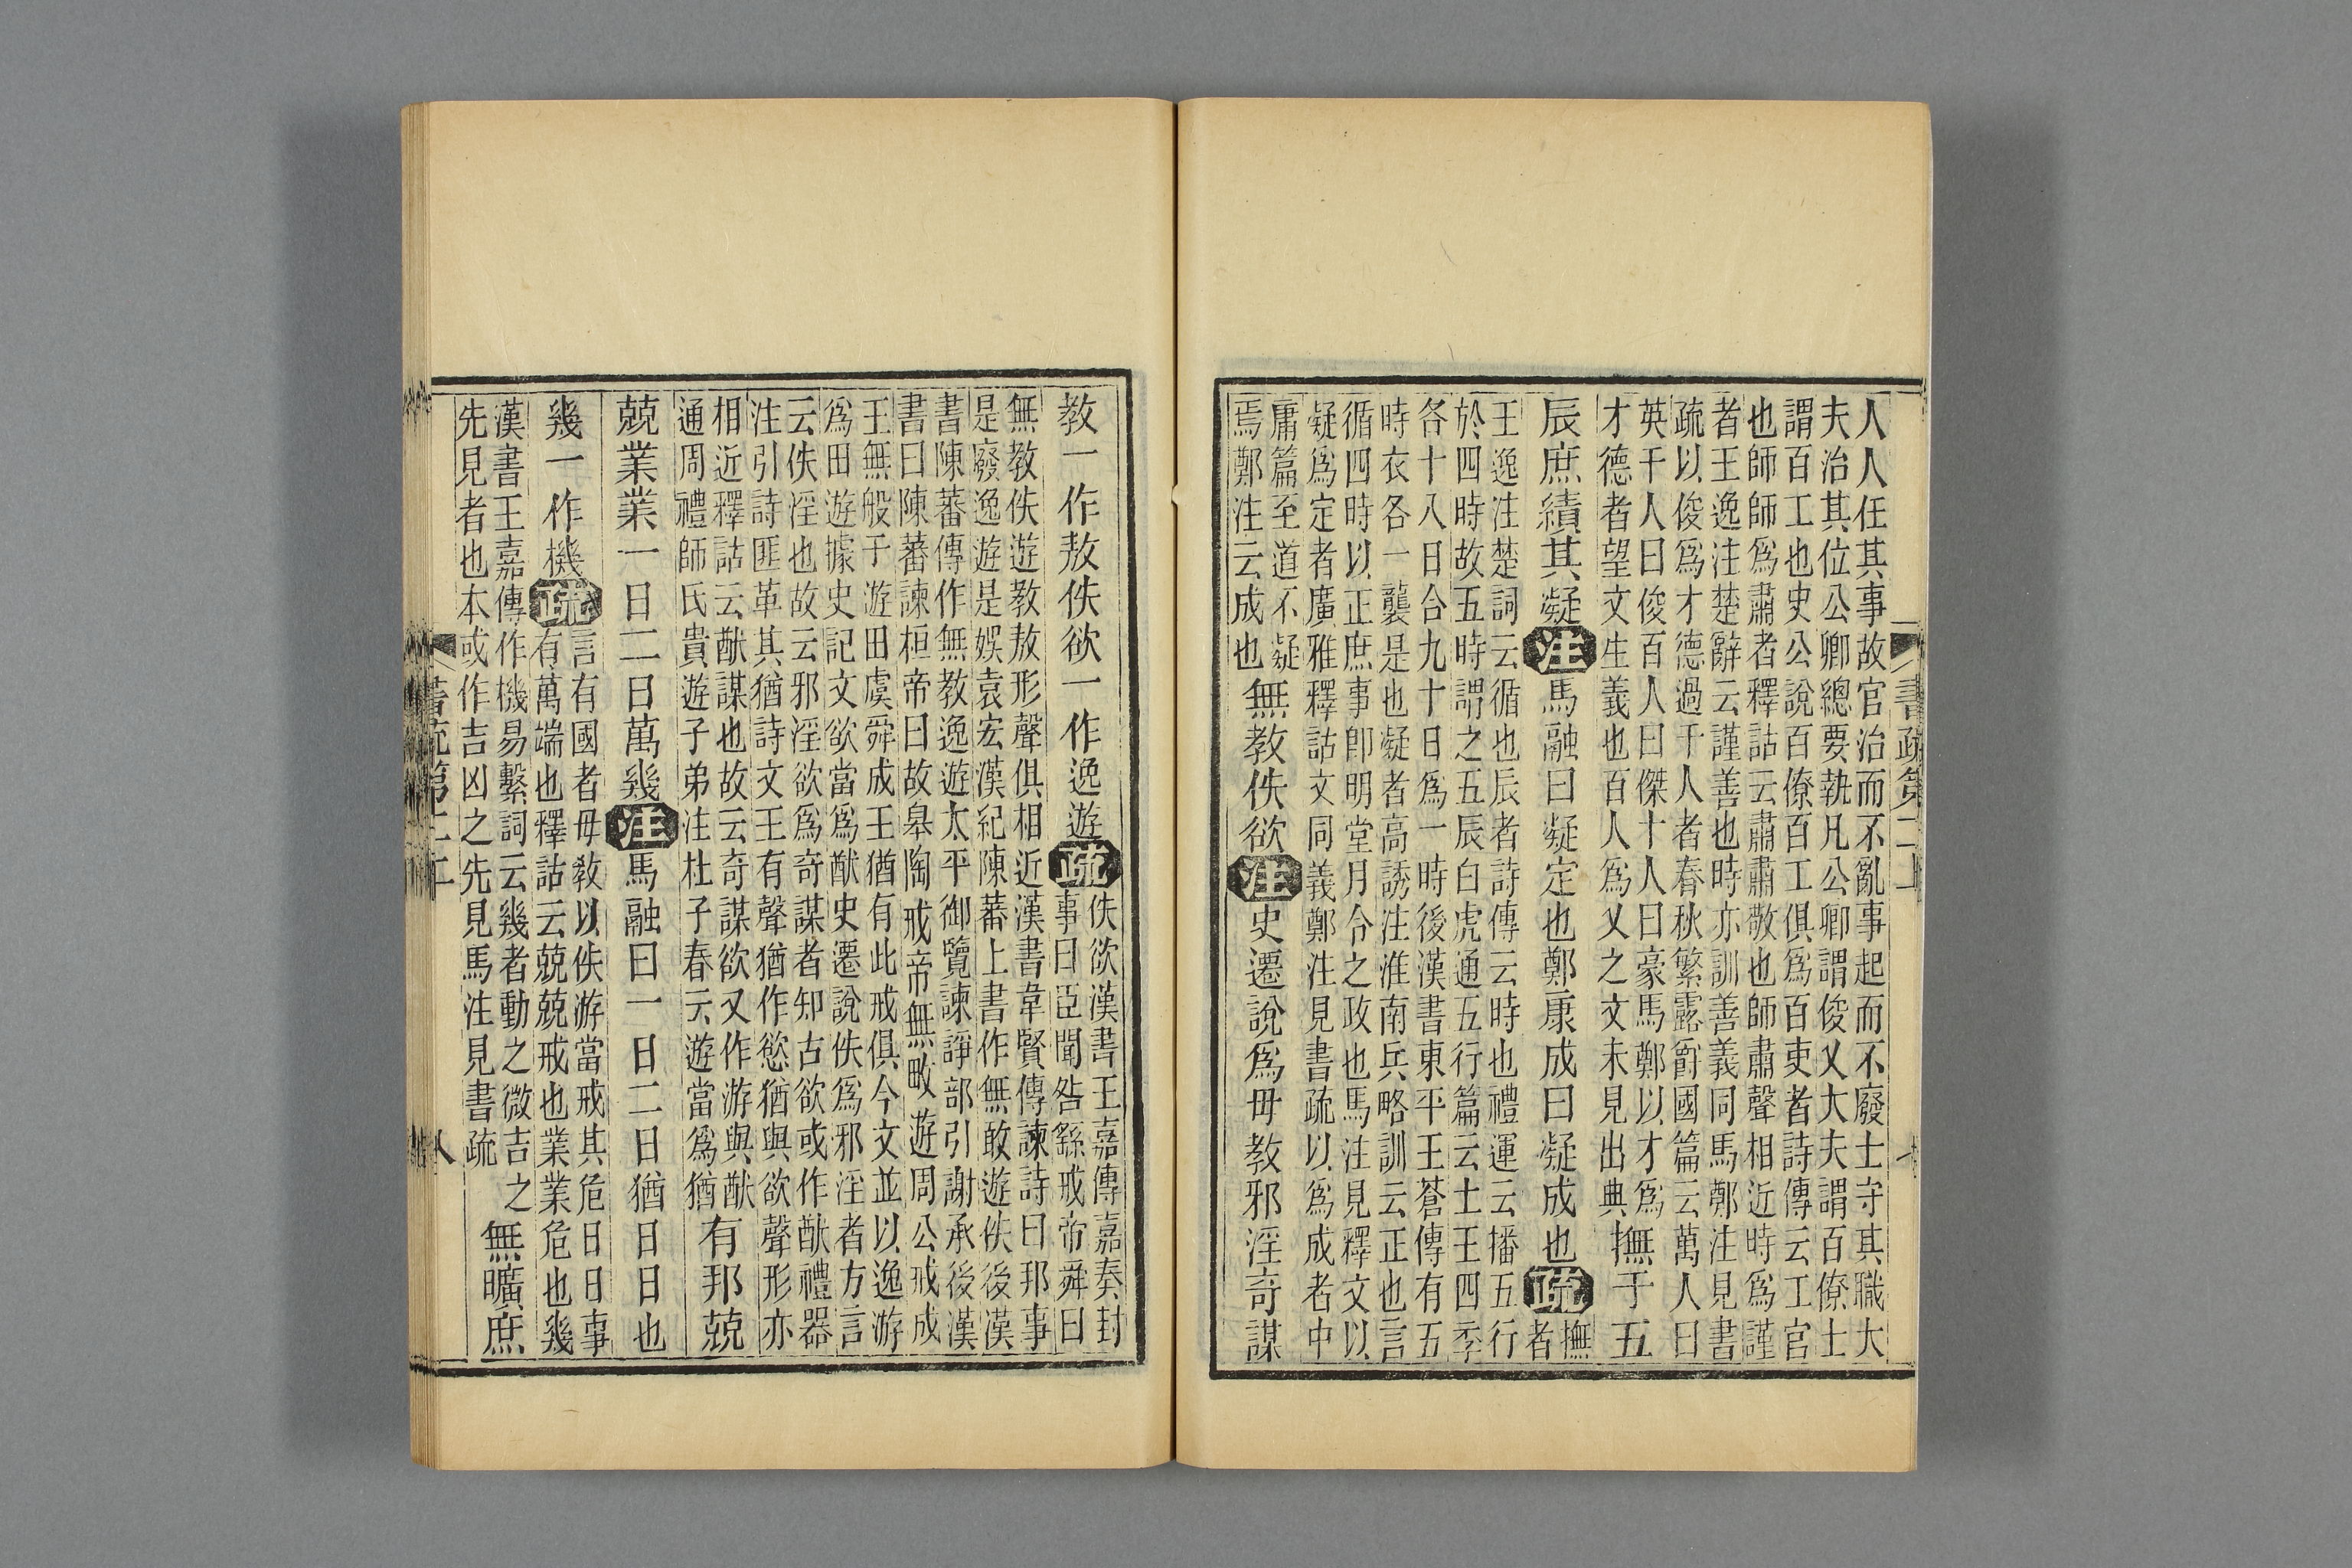 書疏第二上
七
人人任其事故官治而不亂事起而不廢士守其職大
夫治其位公卿總要執凡公卿謂俊乂大夫謂百僚士
謂百工也史公說百僚百工俱爲百吏者詩傳云工官
也師師爲肅者釋詁云肅肅敬也師肅聲相近時爲謹
者王逸注楚辭云謹善也時亦訓善義同馬鄭注見書
疏以俊爲才德過千人者春秋繁露爵國篇云萬人曰
英千人曰俊百人曰傑十人曰豪馬鄭以才爲
才德者望文生義也百人爲乂之文未見出典
撫于五
辰庶績其凝注馬融曰凝定也鄭康成曰凝成也疏撫
者
王逸注楚詞云循也辰者詩傳云時也禮運云播五行
於四時故五時謂之五辰白虎通五行篇云土王四季
各十八日合九十日爲一時後漢書東平王蒼傳有五
時衣各一襲是也凝者高誘注淮南兵略訓云正也言
循四時以正庶事卽明堂月令之政也馬注見釋文以
凝爲定者廣雅釋詁文同義鄭注見書疏以爲成者中
庸篇至道不凝
焉鄭注云成也
無教佚欲注史遷說爲毋教邪淫奇謀
教一作敖佚欲一作逸遊疏佚欲漢書王嘉傳嘉奏封
事曰臣聞咎繇戒帝舜曰
無教佚遊教敖形聲俱相近漢書韋賢傳諫詩曰邦事
是廢逸遊是娛袁宏漢紀陳蕃上書作無敢遊佚後漢
書陳蕃傳作無教逸遊太平御覽諫諍部引謝承後漢
書曰陳蕃諫桓帝曰故皋陶戒帝無敢遊周公戒成
王無般于遊田虞舜成王猶有此戒俱今文並以逸游
爲田遊據史記文欲當爲猷史遷說佚爲邪淫者方言
云佚淫也故云邪淫欲爲奇謀者知古欲或作猷禮器
注引詩匪革其猶詩文王有聲猶作慾猶與欲聲形亦
相近釋詁云猷謀也故云奇謀欲又作游與猷
通周禮師氏貴遊子弟注杜子春云遊當爲猶
有邦兢
兢業業一日二日萬幾注馬融曰一日二日猶日日也
幾一作機疏言有國者毋敎以佚游當戒其危日日事
有萬端也釋詁云兢兢戒也業業危也幾
漢書王嘉傳作機易繫詞云幾者動之微吉之
先見者也本或作吉凶之先見馬注見書疏
無曠庶
書疏第二上
八